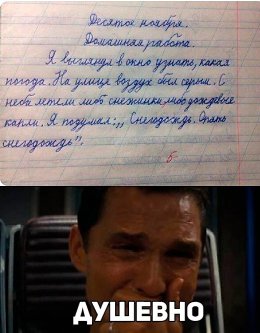 Десятое ноября.
Домашняя работа.
Я выглянул в окно узнать, какая
погода. На улице воздух был серым. С
неба летели либо снежинки, либо дождевые
капли. Я подумал: ,, Снегодождь. Опять
снегодождь".
5
ДУШЕВНО